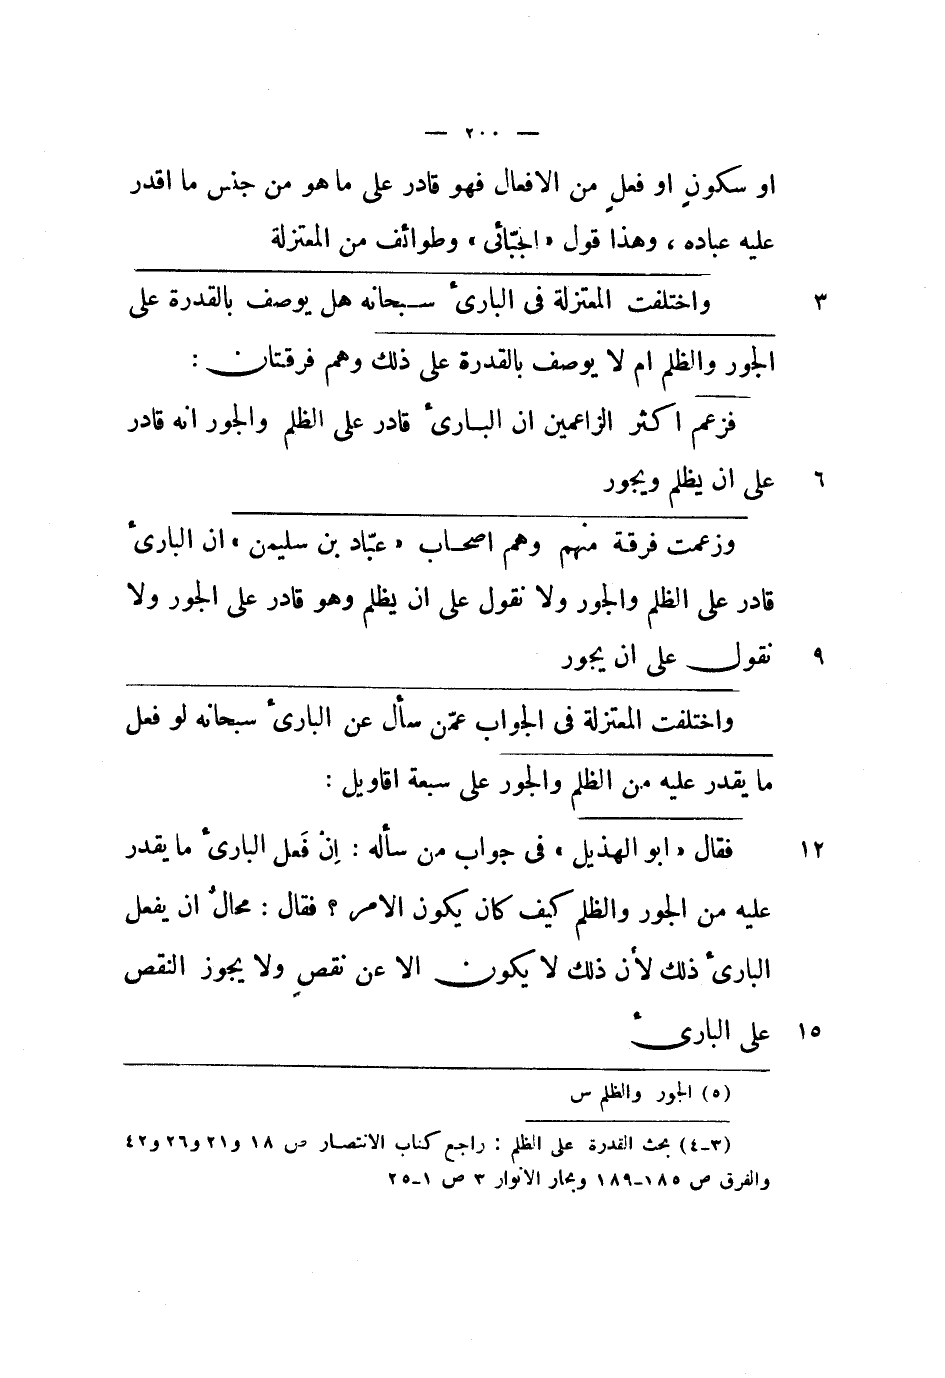 — ٢٠٠ —
او سكونٍ او فعلٍ من الافعال فهو قادر على ما هو من جنس ما اقدر
عليه عباده ، وهذا قول « الجبّائى » وطوائف من المعتزلة
٣ واختلفت المعتزلة فى البارئ سبحانه هل يوصف بالقدرة على
الجور والظلم ام لا يوصف بالقدرة على ذلك وهم فرقتان :
فزعم اكثر الزاعمين ان البارئ قادر على الظلم والجور انه قادر
٦ على ان يظلم ويجور
وزعمت فرقة منهم وهم اصحاب « عبّاد بن سليمن » ان البارئ
قادر على الظلم والجور ولا نقول على ان يظلم وهو قادر على الجور ولا
٩ نقول على ان يجور
واختلفت المعتزلة فى الجواب عمّن سأل عن البارئ سبحانه لو فعل
ما يقدر عليه من الظلم والجور على سبعة اقاويل :
١٢ فقال « ابو الهذيل » فى جواب من سأله : إنْ فَعل البارئ ما يقدر
عليه من الجور والظلم كيف كان يكون الامر ؟ فقال : محالٌ ان يفعل
البارئ ذلك لأن ذلك لا يكون الا عن نقصٍ ولا يجوز النقص
١٥ على البارئ
(٥) الجور والظلم س
(٣-٤) بحث القدرة على الظلم : راجع كتاب الانتصار ص ١٨ و٢١ و٢٦ و٤٢
والفرق ص ١٨٥-١٨٩ وبحار الانوار ٣ ص ١-٢٥